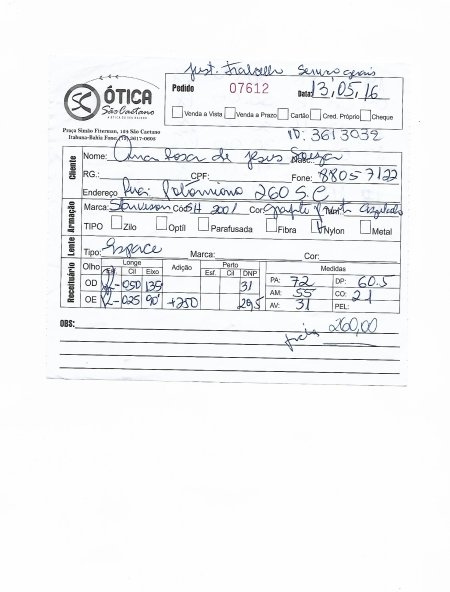 Just. Trabalho Serviço gerais
ÓTICA
São Caetano
Pedido 07612 Data: 13,05,16
Venda a Vista Venda a Prazo Cartão Créd. Próprio Cheque
Praça Simão Fiterman, 104 São Caetano
Itabuna-Bahia Fone: (73) 3617-0695
ID: 3613032
Cliente
Nome: Ana Rosa de Jesus Souza
RG.: CPF: Fone: 88057122
Endereço Rua: 260 S.C
Armação
Marca: Cód. SH 2001 Cor:
TIPO Zilo Optil Parafusada Fibra Nylon Metal
Lente
Tipo: Marca: Cor:
Receituário
Olho Longe Adição Perto Medidas
Esf. Cil Eixo Esf. Cil DNP
OD PL -050 135 31 PA: 72 DP: 60.5
OE PL -025 90° +250 29,5 AM: 55 CO: 21
AV: 31 PEL:
OBS: 260,00